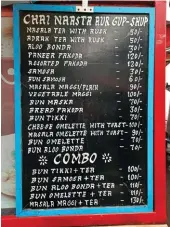 CHAI NAASTA AUR GUP-SHUP
MASALA TER WITH RUSK - 50/-
ADRAK TER WITH RUSK - 50/-
ALOO BONDA - 30/-
PANEER PAKODA - 120/-
ASSORTED PAKODA - 120/-
SAMOSA - 30/-
BUN SAMOSA - 60/-
MASALA MAGGI/PLAIN - 90/-
VEGETABLE MAGGI - 100/-
BUN MASKA - 70/-
BREAD PAKODA - 30/-
BUN TIKKI - 70/-
CHEESE OMELETTE WITH TOAST - 110/-
MASALA OMELETTE WITH TOAST - 90/-
BUN OMELETTE - 70/-
BUN ALOO BONDA - 70/-
COMBO
BUN TIKKI + TER - 100/-
BUN SAMOSA + TER - 100/-
BUN ALOO BONDA + TER - 110/-
BUN OMELETTE + TER - 110/-
MASALA MAGGI + TER - 130/-